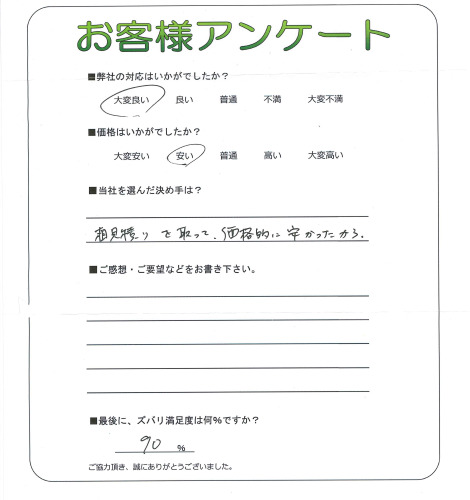 お客様アンケート
■弊社の対応はいかがでしたか？
大変良い 良い 普通 不満 大変不満
■価格はいかがでしたか？
大変安い 安い 普通 高い 大変高い
■当社を選んだ決め手は？
相見積りを取って、価格的に安かったから。
■ご感想・ご要望などをお書き下さい。
■最後に、ズバリ満足度は何%ですか？
90 %
ご協力頂き、誠にありがとうございました。